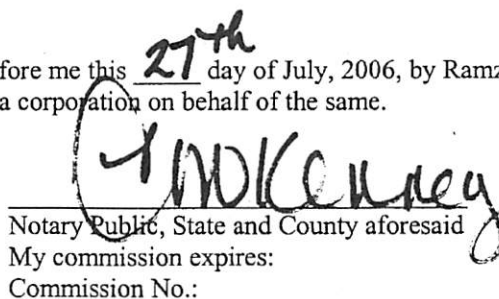 fore me this 27th day of July, 2006, by Ramz
a corporation on behalf of the same.
Notary Public, State and County aforesaid
My commission expires:
Commission No.: